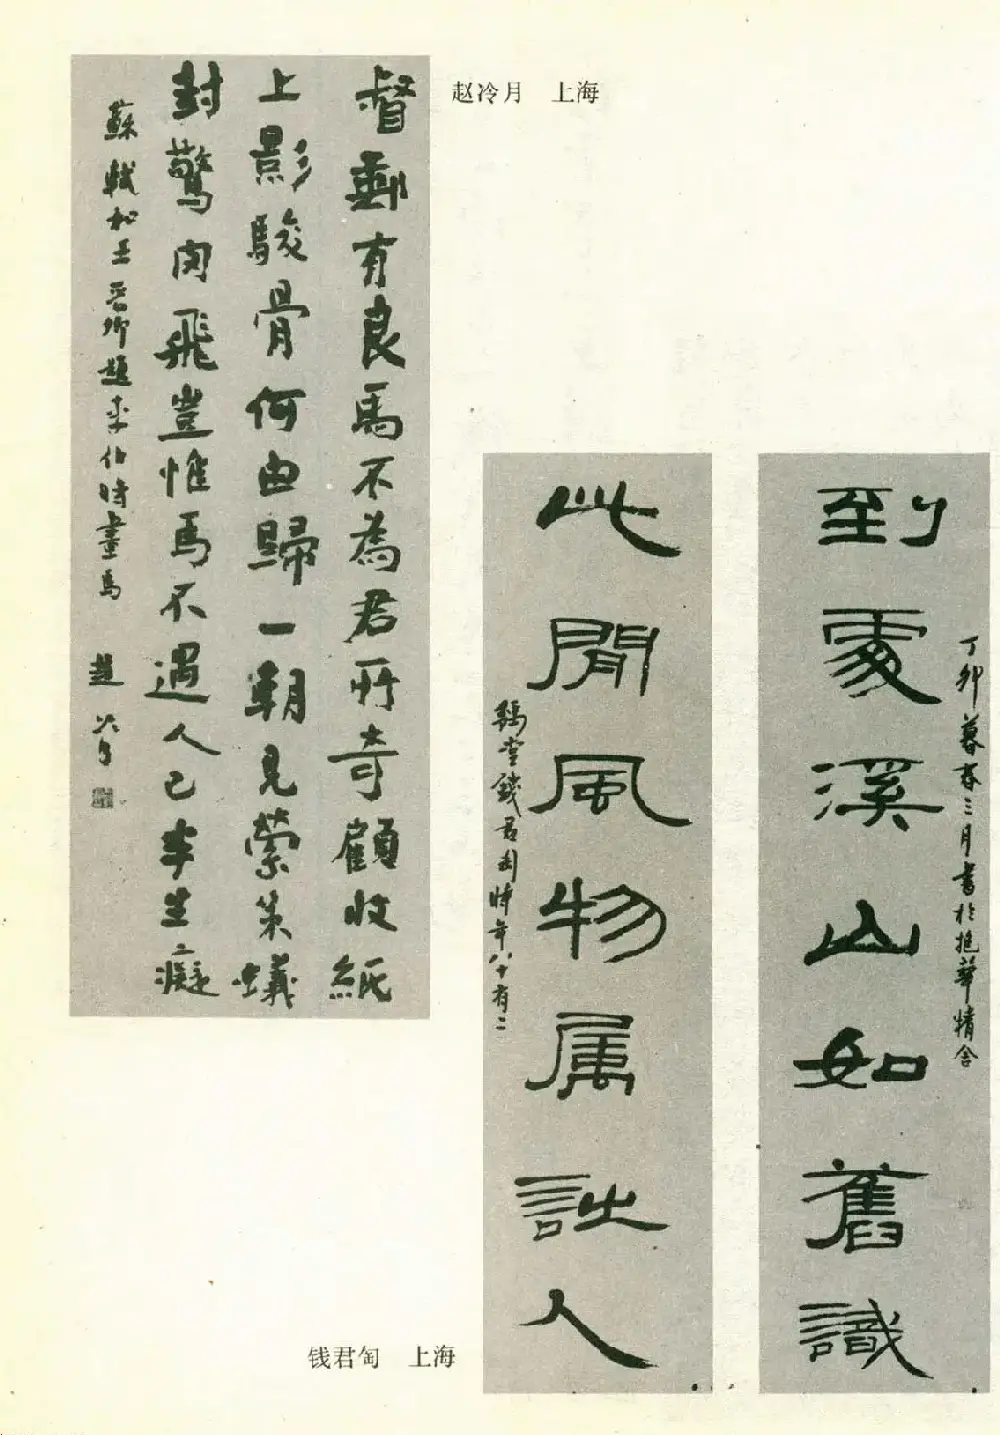 赵冷月 上海
督郵有良馬不為君所奇顧收紙
上影駿骨何由歸一朝見縈策蟻
封驚肉飛豈惟馬不遇人已半生癡
蘇軾和王晋卿題李伯時畫馬 趙冷月
丁卯暮春三月書於抱華精舍
到處溪山如舊識
此閒風物属詩人
豫堂錢君匋時年八十有二
钱君匋 上海